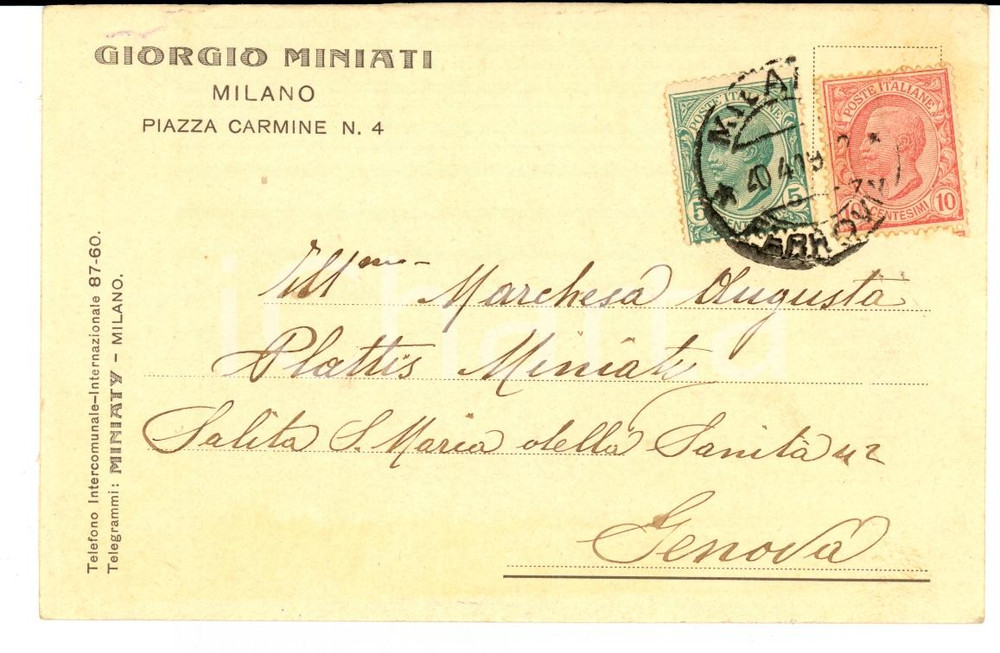 GIORGIO MINIATI
MILANO
PIAZZA CARMINE N. 4
POSTE ITALIANE
5 5
POSTE ITALIANE
10
CENTESIMI
MILA
FERROVIA
Telefono Intercomunale-Internazionale 87-60.
Telegrammi: MINIATY - MILANO.
Ill^ma Marchesa Augusta
Plattis Miniati
Salita S. Maria della Sanità 42
Genova